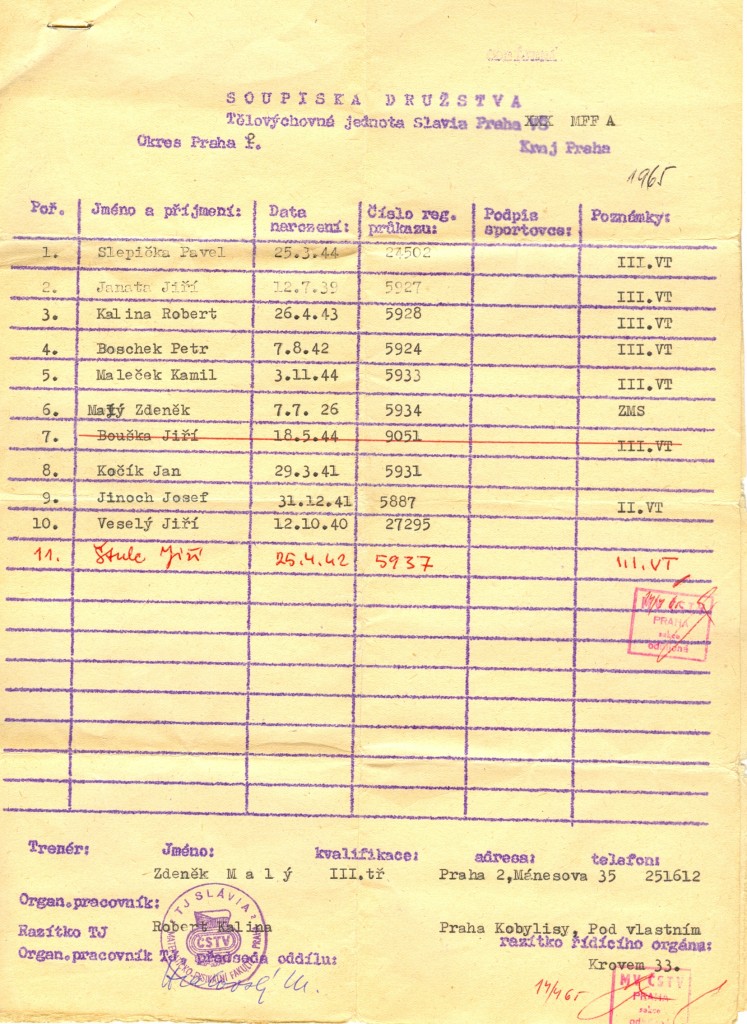 SOUPISKA DRUŽSTVA
Tělovýchovná jednota Slavia Praha MFF A
Okres Praha Kraj Praha
1965
Poř. Jméno a příjmení: Data narození: Číslo reg. průkazu: Podpis sportovce: Poznámky:
1. Slepička Pavel 25.3.44 24502 III.VT
2. Janata Jiří 12.7.39 5927 III.VT
3. Kalina Robert 26.4.43 5928 III.VT
4. Boschek Petr 7.8.42 5924 III.VT
5. Maleček Kamil 3.11.44 5933 III.VT
6. Malý Zdeněk 7.7. 26 5934 ZMS
7. Bouška Jiří 18.5.44 9051 III.VT
8. Kočík Jan 29.3.41 5931
9. Jinoch Josef 31.12.41 5887 II.VT
10. Veselý Jiří 12.10.40 27295
11. Štulc Jiří 25.4.42 5937 III.VT
PRAHA
sekce
odbíjená
Trenér: Jméno: kvalifikace: adresa: telefon:
Zdeněk Malý III.tř Praha 2,Mánesova 35 251612
Organ.pracovník:
TJ SLÁVIA
ČSTV
Razítko TJ Robert Kalina Praha Kobylisy, Pod vlastním
razítko řídícího orgánu:
Organ.pracovník TJ, předseda oddílu:
Krovem 33.
MV ČSTV
PRAHA
sekce